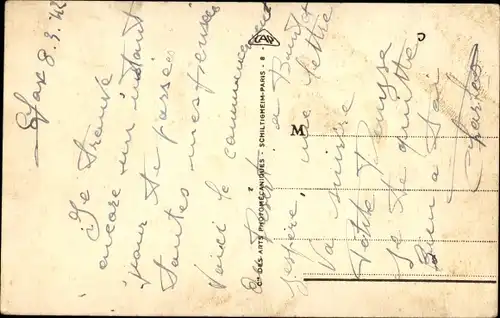 Sfax 8.3.42
Je trouve
encore un instant
pour te passer
toutes mes pensées
Voici le commencement
du Port
J'espère une lettre
Va suivre
Petite
Je te quitte
Bien a toi
Charles
M
Cie DES ARTS PHOTOMÉCANIQUES - SCHILTIGHEIM-PARIS - 8 -
CAP
2